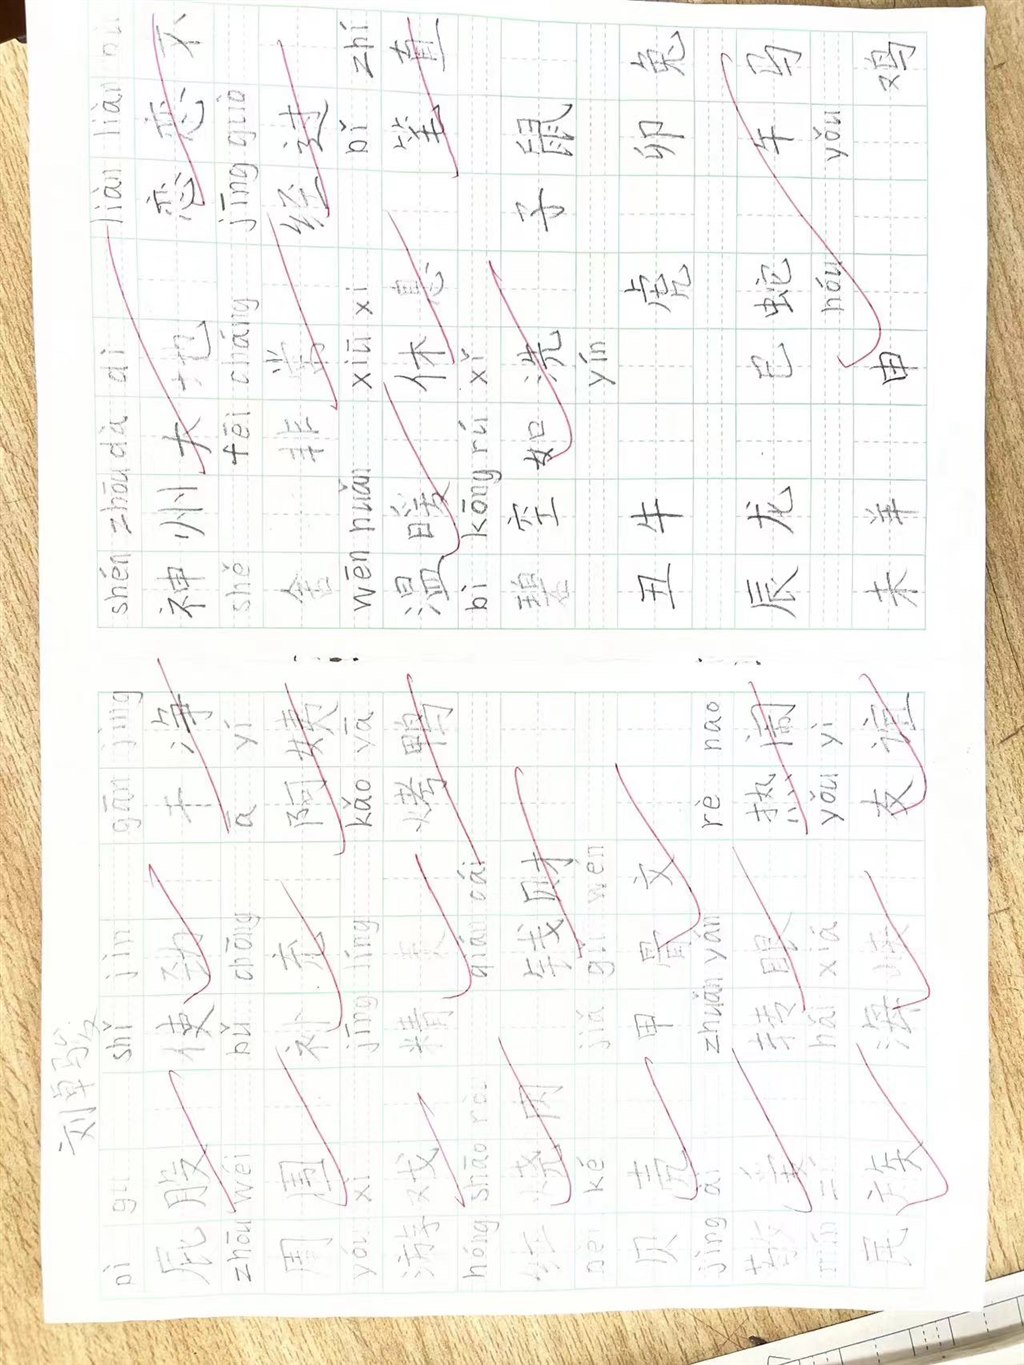 刘卓
pì gu shǐ jìn gān jìng
屁股 使劲 干净
zhōu wéi bǔ chōng ā yí
周围 补充 阿姨
yóu xì jīng líng kǎo yā
游戏 精灵 烤鸭
hóng shāo ròu qián cái
红烧肉 钱财
bèi ké jiǎ gǔ wén
贝壳 甲骨文
jìng ài zhuǎn yǎn rè nao
敬爱 转眼 热闹
mín zú hǎi xiá yǒu yì
民族 海峡 友谊
shén zhōu dà dì liàn liàn bù
神州大地 恋恋不
shě fēi cháng jīng guò
舍 非常 经过
wēn nuǎn xiū xi bǐ zhí
温暖 休息 笔直
bì kōng rú xǐ
碧空如洗 子鼠
yín
丑牛 虎 卯兔
辰龙 巳蛇 午马
hóu yǒu
未羊 申 鸡